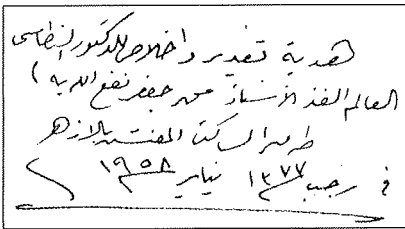 هدية تقدير وإخلاص للدكتور النطاسى
العالم الفذ الأستاذ محمد جعفر نفع الله به )
طه محمد الساكت المفتش بالأزهر
فى رجب ١٣٧٧ يناير ١٩٥٨